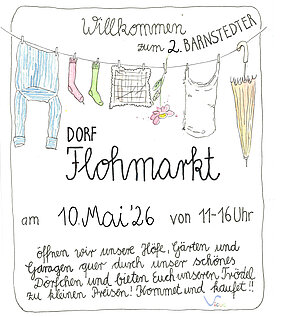 Willkommen
zum 2. BARNSTEDTER
DORF
Flohmarkt
am 10. Mai '26 von 11-16 Uhr
öffnen wir unsere Höfe, Gärten und
Garagen quer durch unser schönes
Dörfchen und bieten Euch unseren Trödel
zu kleinen Preisen! Kommet und kaufet!!